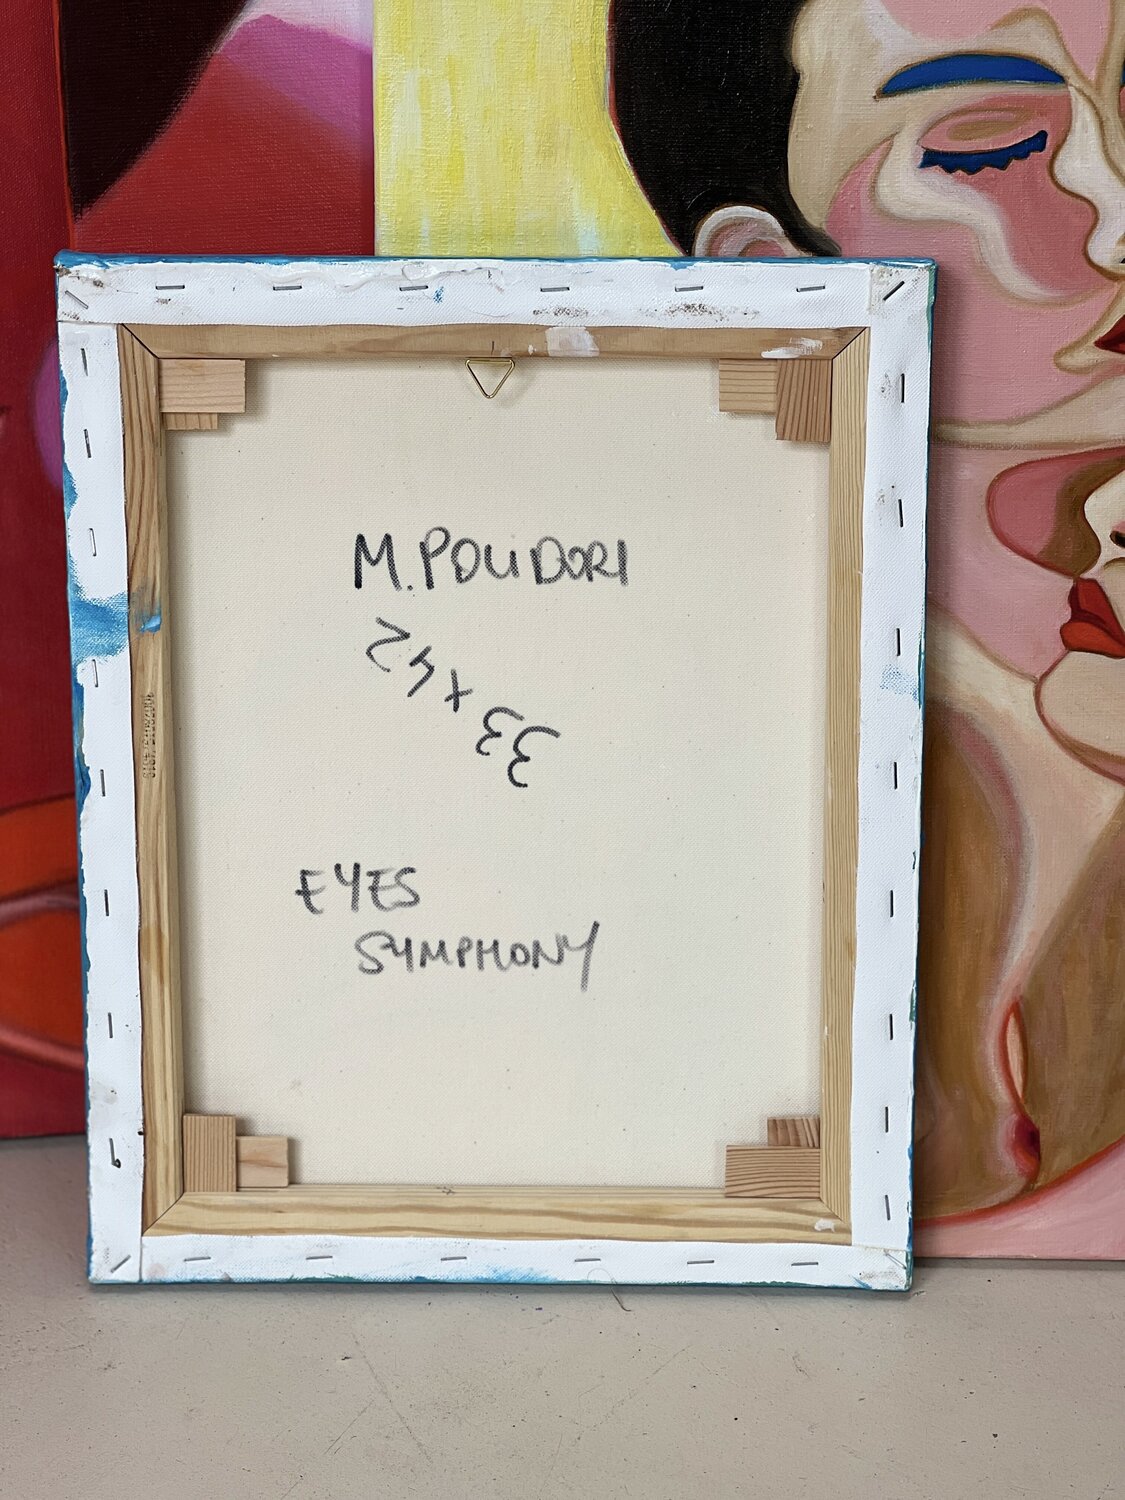 M.POLIDORI
33 x 42
EYES
SYMPHONY